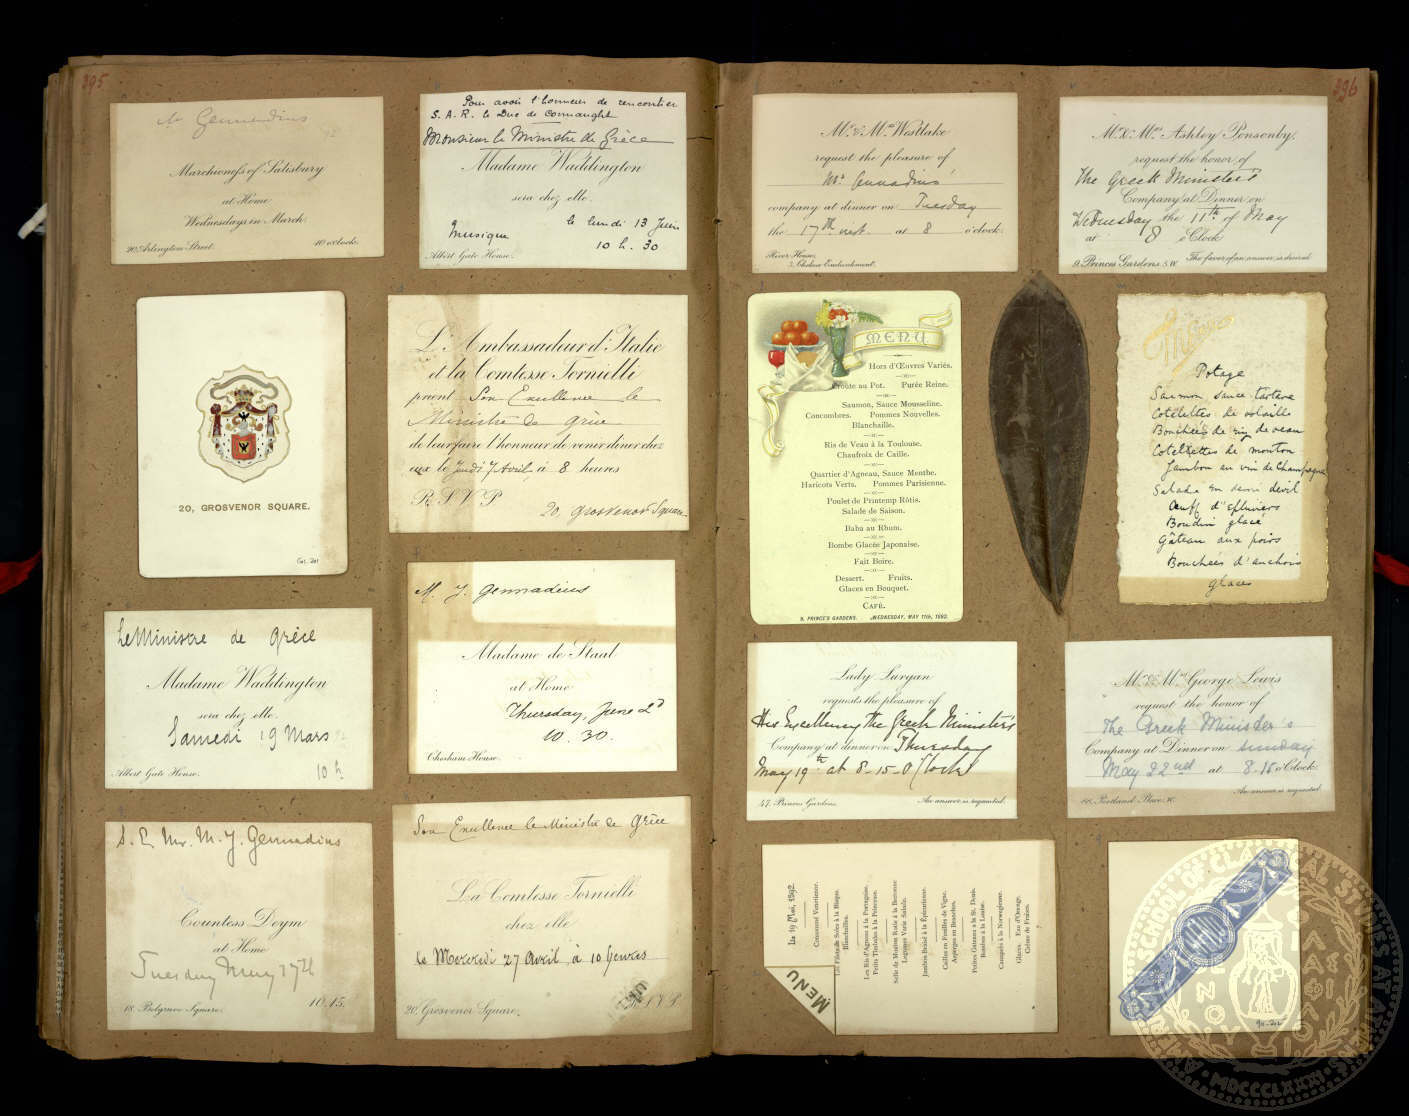 395
Mr Gennadius
Marchioness of Salisbury
at Home
Wednesdays in March.
20, Arlington Street.
10 o'clock.
Pour avoir l'honneur de rencontrer
S. A. R. le Duc de Connaught
Monsieur le Ministre de Grèce
Madame Waddington
sera chez elle.
le lundi 13 Juin
Musique
10 h. 30
Albert Gate House.
20, GROSVENOR SQUARE.
L'Ambassadeur d'Italie
et la Comtesse Tornielli
prient Son Excellence le
Ministre de Grèce
de leur faire l'honneur de venir diner chez
eux le Jeudi 7 Avril, à 8 heures
R. S. V. P
20, Grosvenor Square.
Le Ministre de Grèce
Madame Waddington
sera chez elle.
Samedi 19 Mars
Albert Gate House.
10 h
M. J. Gennadius
Madame de Staal
at Home
Thursday, June 2d
10. 30.
Chesham House.
S. E. Mr. M. J. Gennadius
Countess Deym
at Home
Tuesday May 17th
18. Belgrave Square.
10.15.
Son Excellence le Ministre de Grèce
La Comtesse Tornielli
chez elle
le Mercredi 27 Avril, à 10 heures
20, Grosvenor Square.
R.S.V.P.
396
Mr. & Mrs. Westlake
request the pleasure of
Mr. Gennadius'
company at dinner on Tuesday
the 17th inst. at 8 o'clock.
River House,
3, Chelsea Embankment.
Mr. & Mrs. Ashley Ponsonby,
request the honor of
The Greek Minister's
Company at Dinner on
Wednesday the 11th of May
at 8 o'Clock
9. Princes Gardens S.W.
The favor of an answer is desired.
MENU
Hors d'Œuvres Variés.
Croûte au Pot. Purée Reine.
Saumon, Sauce Mousseline.
Concombres. Pommes Nouvelles.
Blanchaille.
Ris de Veau à la Toulouse.
Chaufroix de Caille.
Quartier d'Agneau, Sauce Menthe.
Haricots Verts. Pommes Parisienne.
Poulet de Printemp Rôtis.
Salade de Saison.
Baba au Rhum.
Bombe Glacée Japonaise.
Fait Boire.
Dessert. Fruits.
Glaces en Bouquet.
CAFÉ.
9, PRINCE'S GARDENS. WEDNESDAY, MAY 11th, 1892.
Potage
Saumon sauce tartare
Cotelettes de volaille
Bouchées de riz de veau
Cotelettes de mouton
Jambon au vin de Champagne
Salade en demi devil
Boudin glacé
Gâteau aux poirs
Bouchées d'anchois
glaces
Lady Luryan
requests the pleasure of
His Excellency the Greek Minister's
Company at dinner on Thursday
May 19th at 8-15-O'Clock
47, Princes Gardens.
An answer is requested.
Mr. & Mrs. George Lewis
request the honor of
The Greek Minister's
Company at Dinner on Sunday
May 22nd at 8-15 o'Clock.
Portland Place. W.
An answer is requested.
MENU
Le 19 Mai, 1892.
Consommé Venetienne.
Blanchailles.
Les Ris d'Agneau à la Portugaise.
Selle de Mouton Rotie à la Bretonne
Jambon Braisé à la Épicurienne.
Cailles en Feuilles de Vigne.
Asperges en Branches.
Petits Gateaux à la St. Denis.
Bombes à la Louise.
Canapés à la Norwegienne.
Glaces. Eau d'Orange.
Crème de Fraises.
AMERICAN SCHOOL OF CLASSICAL STUDIES AT ATHENS
MDCCCLXXXI